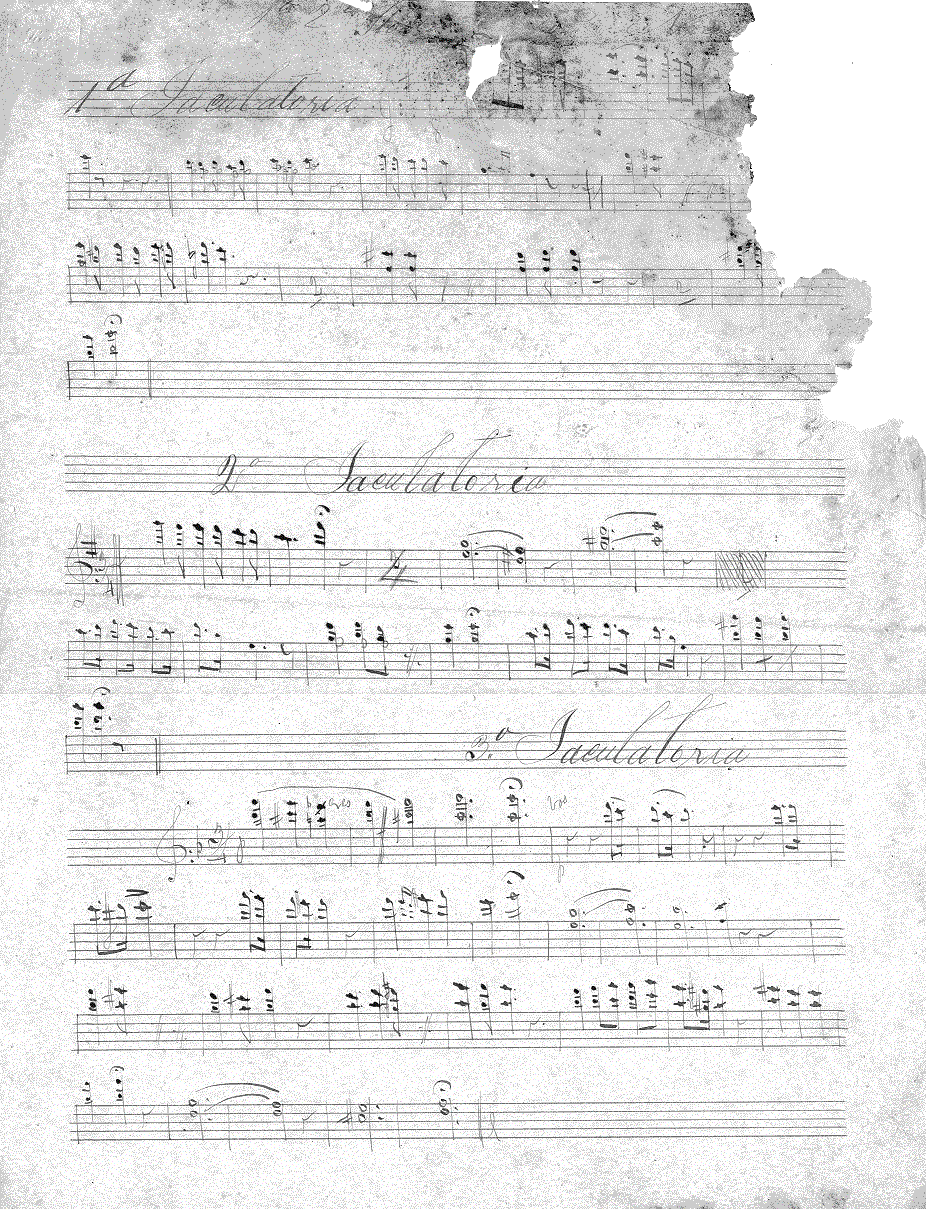 1ª Jaculatoria
2º Jaculatoria
3.º Jaculatoria